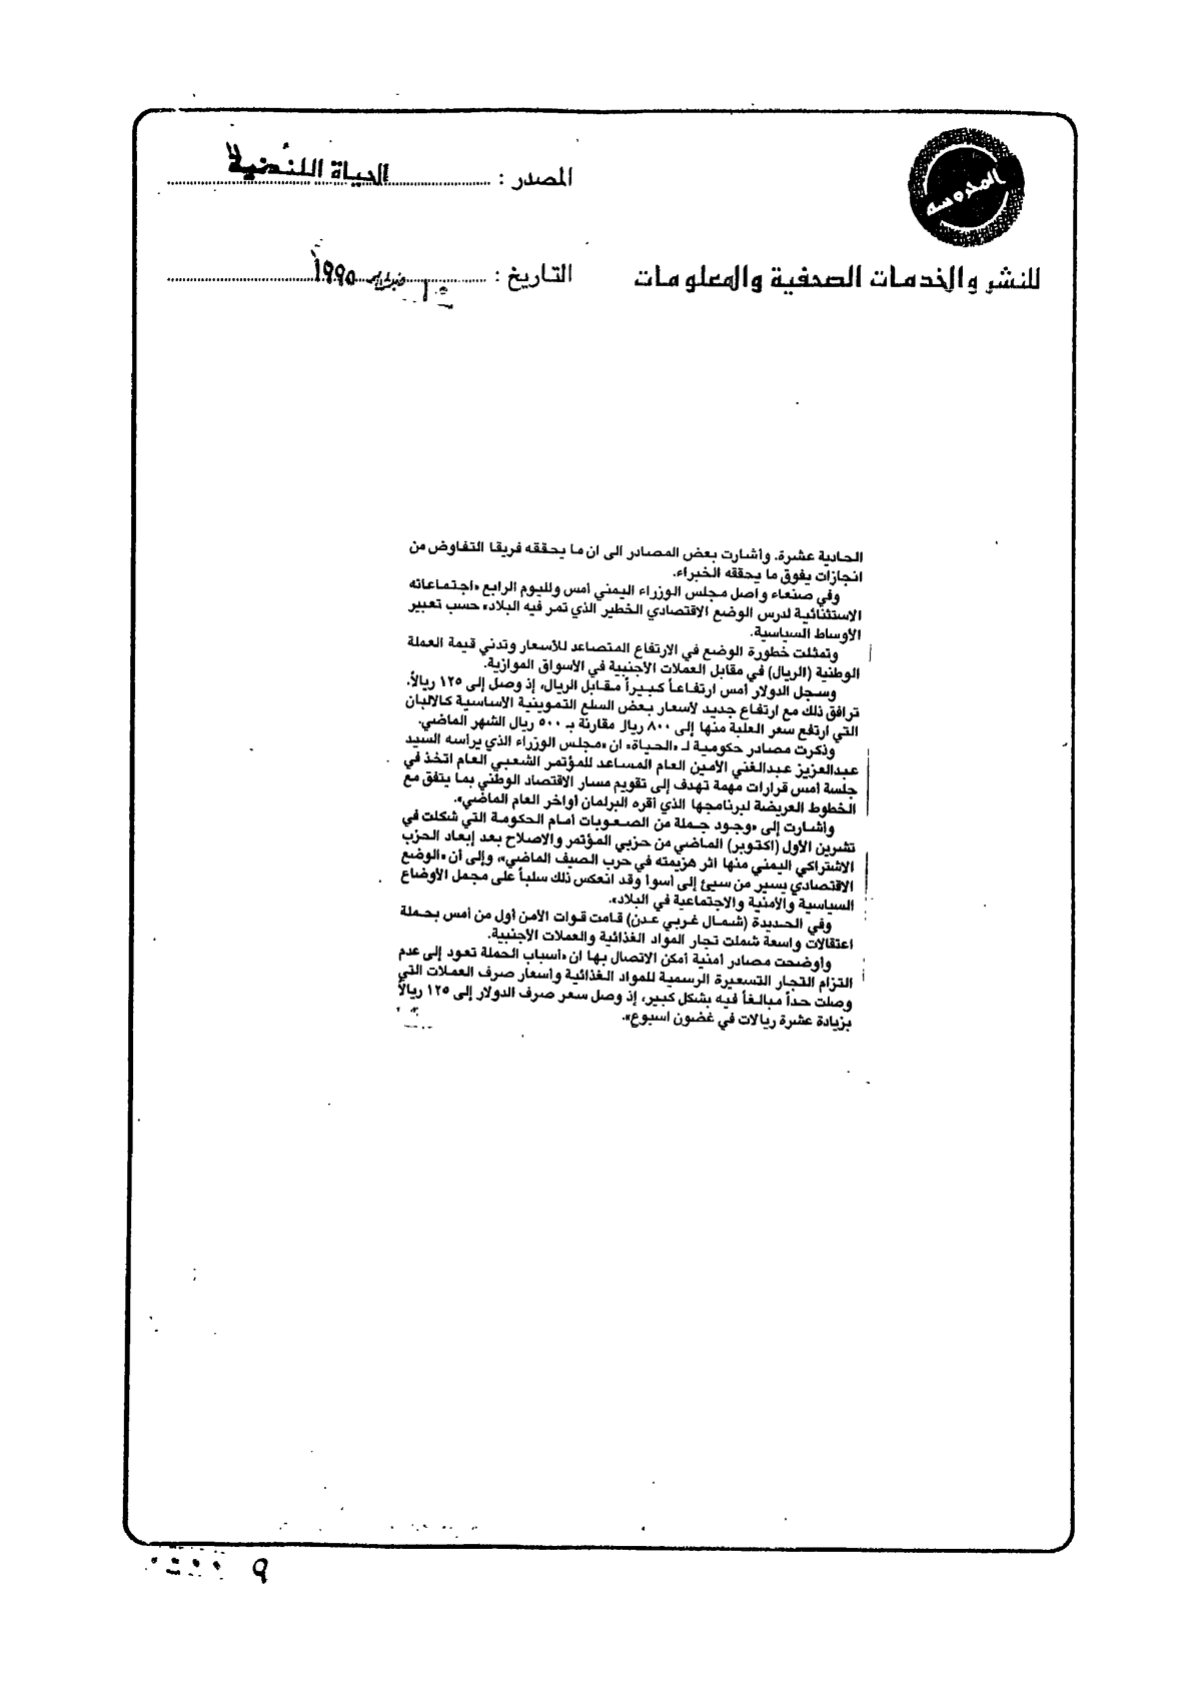 المحروسة
للنشر والخدمات الصحفية والمعلومات
المصدر : الحياة اللندنية
التاريخ : فبراير ١٩٩٥
الحادية عشرة. وأشارت بعض المصادر الى ان ما يحققه فريقا التفاوض من
انجازات يفوق ما يحققه الخبراء.
وفي صنعاء واصل مجلس الوزراء اليمني أمس ولليوم الرابع «اجتماعاته
الاستثنائية لدرس الوضع الاقتصادي الخطير الذي تمر فيه البلاد» حسب تعبير
الأوساط السياسية.
وتمثلت خطورة الوضع في الارتفاع المتصاعد للأسعار وتدني قيمة العملة
الوطنية (الريال) في مقابل العملات الأجنبية في الأسواق الموازية.
وسجل الدولار أمس ارتفاعاً كبيراً مقابل الريال، إذ وصل إلى ١٢٥ ريالاً.
ترافق ذلك مع ارتفاع جديد لأسعار بعض السلع التموينية الأساسية كالالبان
التي ارتفع سعر العلبة منها إلى ٨٠٠ ريال مقارنة بـ ٥٠٠ ريال الشهر الماضي.
وذكرت مصادر حكومية لـ «الحياة» ان «مجلس الوزراء الذي يرأسه السيد
عبدالعزيز عبدالغني الأمين العام المساعد للمؤتمر الشعبي العام اتخذ في
جلسة أمس قرارات مهمة تهدف إلى تقويم مسار الاقتصاد الوطني بما يتفق مع
الخطوط العريضة لبرنامجها الذي أقره البرلمان أواخر العام الماضي».
وأشارت إلى «وجود جملة من الصعوبات أمام الحكومة التي شكلت في
تشرين الأول (اكتوبر) الماضي من حزبي المؤتمر والاصلاح بعد إبعاد الحزب
الاشتراكي اليمني منها اثر هزيمته في حرب الصيف الماضي»، وإلى أن «الوضع
الاقتصادي يسير من سيئ إلى أسوأ وقد انعكس ذلك سلباً على مجمل الأوضاع
السياسية والأمنية والاجتماعية في البلاد».
وفي الحديدة (شمال غربي عدن) قامت قوات الأمن أول من أمس بحملة
اعتقالات واسعة شملت تجار المواد الغذائية والعملات الأجنبية.
وأوضحت مصادر أمنية أمكن الاتصال بها ان «أسباب الحملة تعود إلى عدم
التزام التجار التسعيرة الرسمية للمواد الغذائية وأسعار صرف العملات التي
وصلت حداً مبالغاً فيه بشكل كبير، إذ وصل سعر صرف الدولار إلى ١٢٥ ريالاً
بزيادة عشرة ريالات في غضون اسبوع».
٩